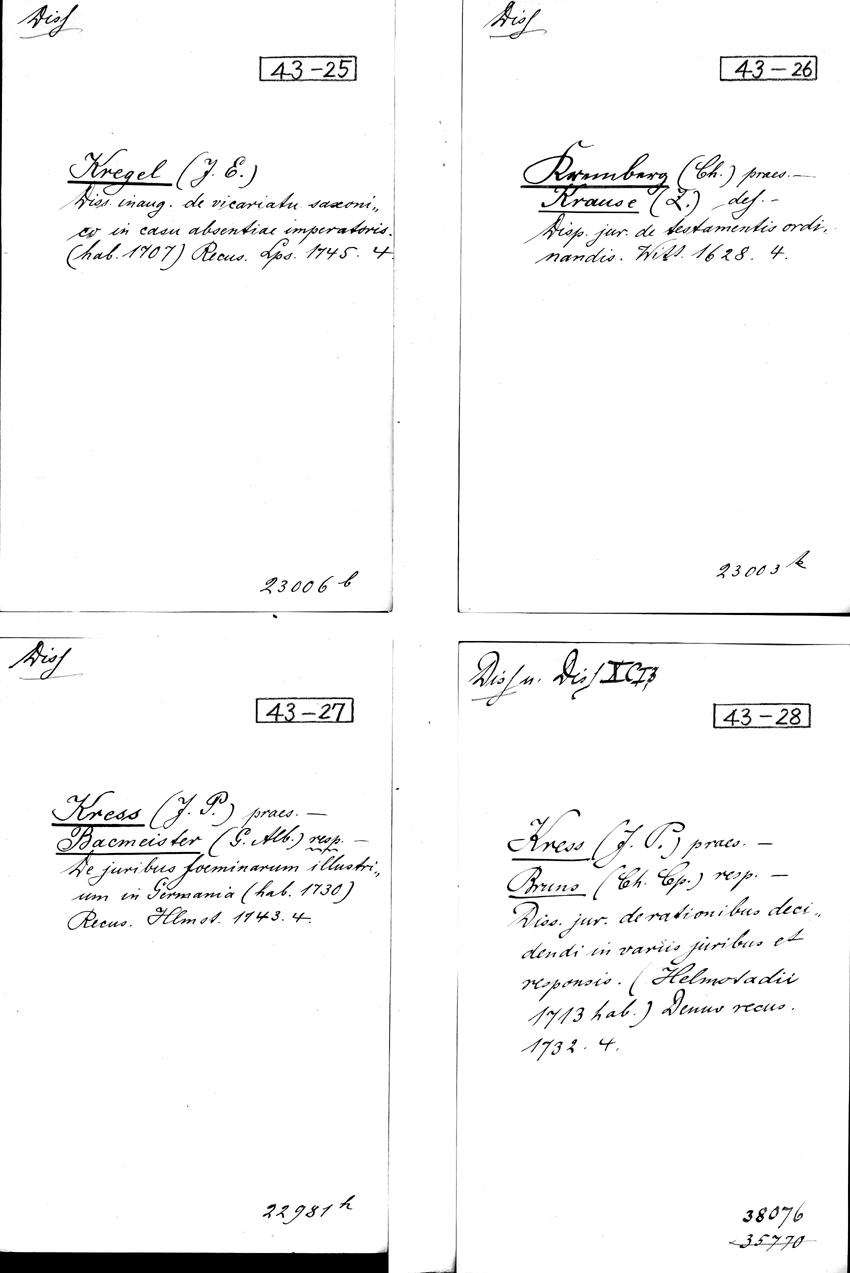 Diss
43-25
Kregel (J. E.)
Diss. inaug. de vicariatu saxoni„
co in casu absentiae imperatoris.
(hab. 1707) Recus. Lps. 1745. 4
23006 b
Diss
43-26
Kremberg (Ch.) praes. —
Krause (Z.) def. -
Disp. jur. de testamentis ordi„
nandis. Witt. 1628. 4.
23003 k
Diss
43-27
Kress (J. P.) praes. —
Bacmeister (G. Alb.) resp. —
De juribus foeminarum illustri„
um in Germania (hab. 1730)
Recus. Hlmst. 1743. 4.
22981 h
Diss u. Diss
43-28
Kress (J. P.) praes. —
Bruns (Ch. Cp.) resp. —
Diss. jur. de rationibus deci„
dendi in variis juribus et
responsis. (Helmstadii
1713 hab.) Denuo recus.
1732. 4.
38076
35770